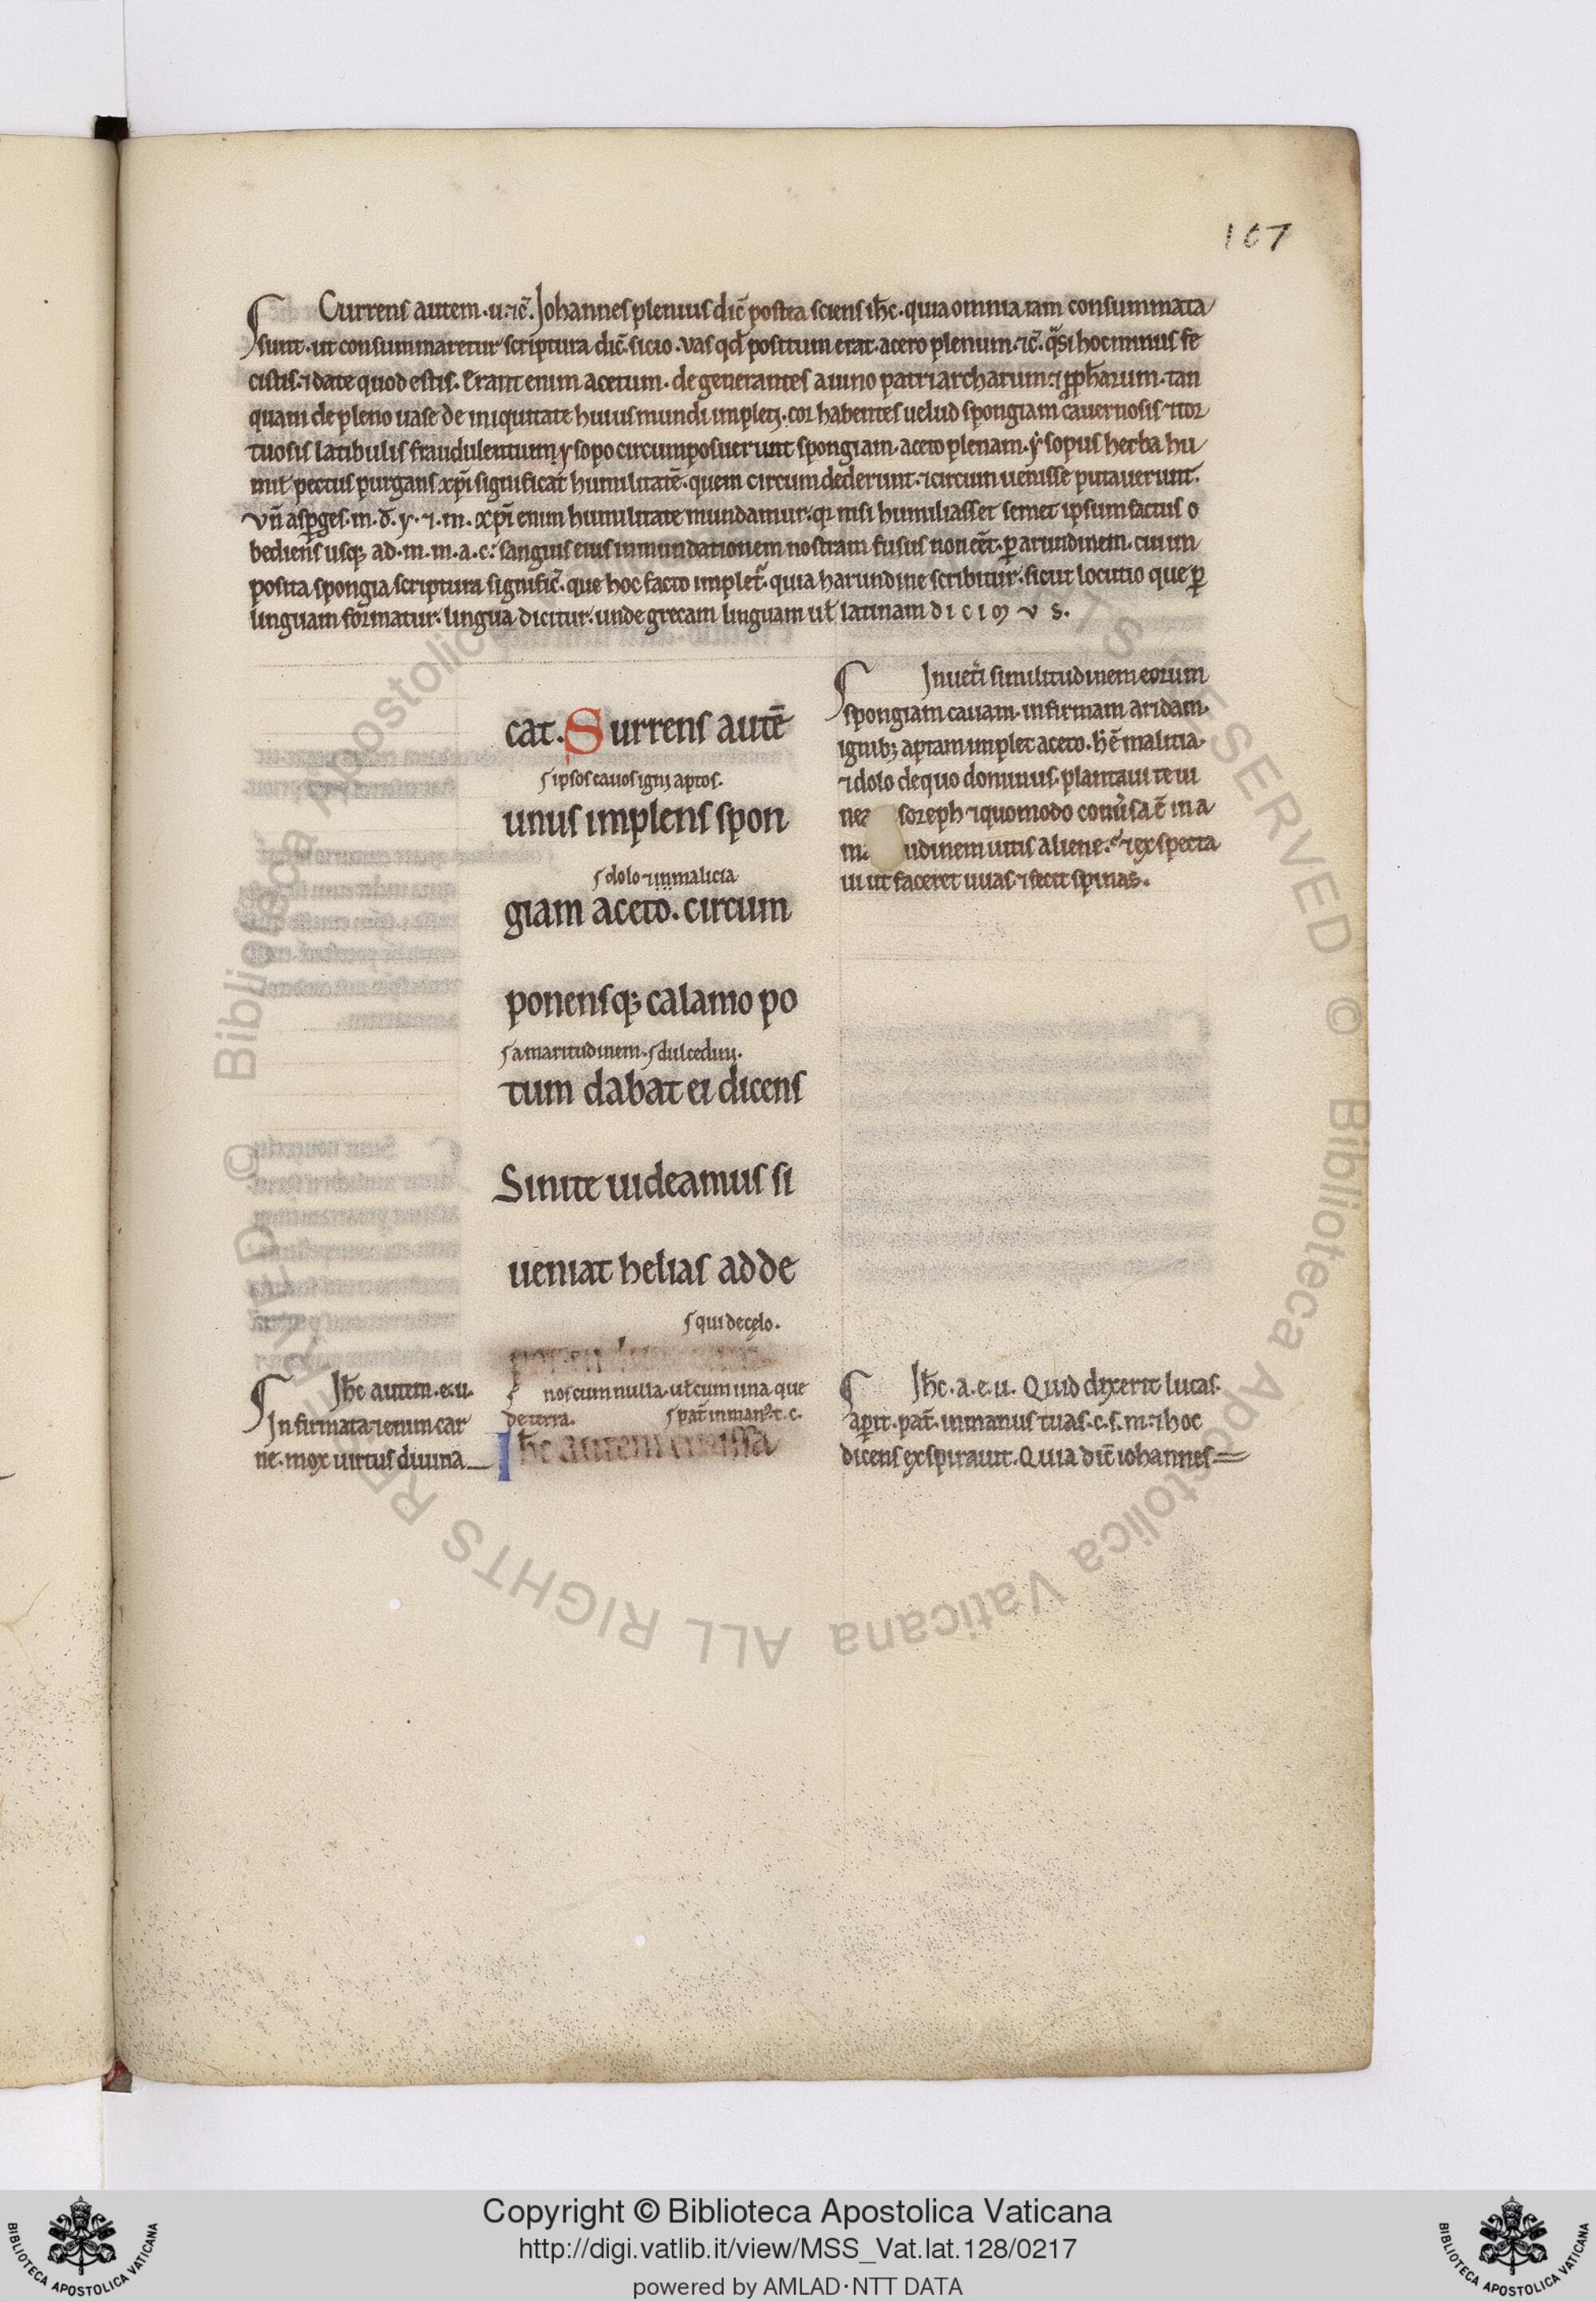 107
Currens autem·u·⁊c̃. Johannes plenius dic̃ postea sciens ih̅c·quia omnia iam consummata
sunt·ut consummaretur scriptura dic̃·sicio·vas qd̅ positum erat·aceto plenum·⁊c̃·q̅si hoc minus fe
cistis·⁊date quod estis. Erant enim acetum·degenerantes a uino patriarcharum·⁊ p̅ph̅arum·tan
quam de pleno uase de iniquitate huius mundi impleti·cor habentes uelud spongiam cauernosis ⁊tor
tuosis latibulis fraudulentum ysopo circumposuerunt spongiam·aceto plenam·ysopus herba hu
mil̅ pectus purgans xp̅i significat humilitatē·quem circumdederunt·⁊circumuenisse putauerunt.
vn̅ asp̅ges·m·d̅·y·⁊·m·xp̅i enim humilitate mundamur·qi nisi humiliasset semet ipsum factus o
bediens usq; ad·m·m·a·c·sanguis eius in mundationem nostram fusus non eēt·p̅ arundinem·cui im
posita spongia scriptura signific̃·que hoc facto implet̃·quia harundine scribitur·sicut locutio que p̅
linguam formatur·lingua dicitur·unde grecam linguam ul̅ latinam dicimus.
cat. Surrens autē
s ipsos cauos igni aptos.
unus implens spon
s dolo ⁊ malicia
giam aceto. circum
ponensq; calamo po
s amaritudinem·s dulcedini·
tum dabat ei dicens
Sinite uideamus si
ueniat helias ad de
s qui de cęlo.
nos cum nulla·ul̅ cum una que
de terra. s pat̃ in man⁹·t·c.
Ih̅c autem emissa
Juxta similitudinem eorum
spongiam cauam·infirmam aridam·
ignib; aptam implet aceto·h̅ ē malitia·
⁊ dolo de quo dominus·plantaui te ui
nea soreph ⁊ quomodo conũsa ē in a
ma udinem uitis aliene·⁊ exspecta
ui ut faceret uuas·⁊ fecit spinas.
Ih̅c autem·e·u·
Infirmata ⁊enim car
ne·mox uirtus diuina
Ih̅c·a·e·u. Quid dixerit lucas·
ap̅it·pat̃·in manus tuas·c·s·m·⁊hoc
dicens exspirauit. Quia dic̃ iohannes
Copyright © Biblioteca Apostolica Vaticana
http://digi.vatlib.it/view/MSS_Vat.lat.128/0217
powered by AMLAD·NTT DATA
BIBLIOTECA APOSTOLICA VATICANA
BIBLIOTECA APOSTOLICA VATICANA
© Biblioteca Apostolica Vaticana ALL RIGHTS RESERVED